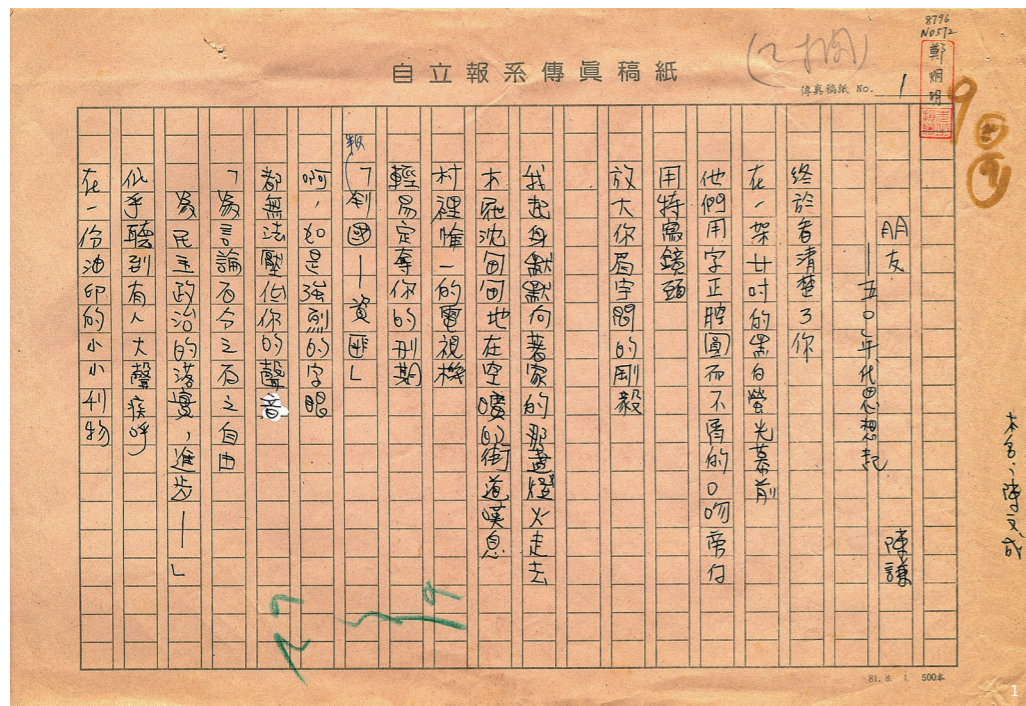 8796
NO572
鄭烱明
自立報系傳眞稿紙
傳眞稿紙 NO. 1
朋友
——五〇年代思想起
陳謙
本名：陳文成
終於看清楚了你
在一架廿吋的黑白螢光幕前
他們用字正腔圓而不屑的口吻
用特寫鏡頭
放大你眉宇間的剛毅
我起身默默向著家的那盞燈火走去
木屐沈甸甸地在空曠的街道嘆息
村裡惟一的電視機
輕易定奪你的刑期
「叛國——資匪」
啊，如是強烈的字眼
都無法壓低你的聲音
「為言論百分之百之自由
為民主政治的落實，進步——」
似乎聽到有人大聲疾呼
在一份油印的小小刊物
81. 8. 1. 500本
1